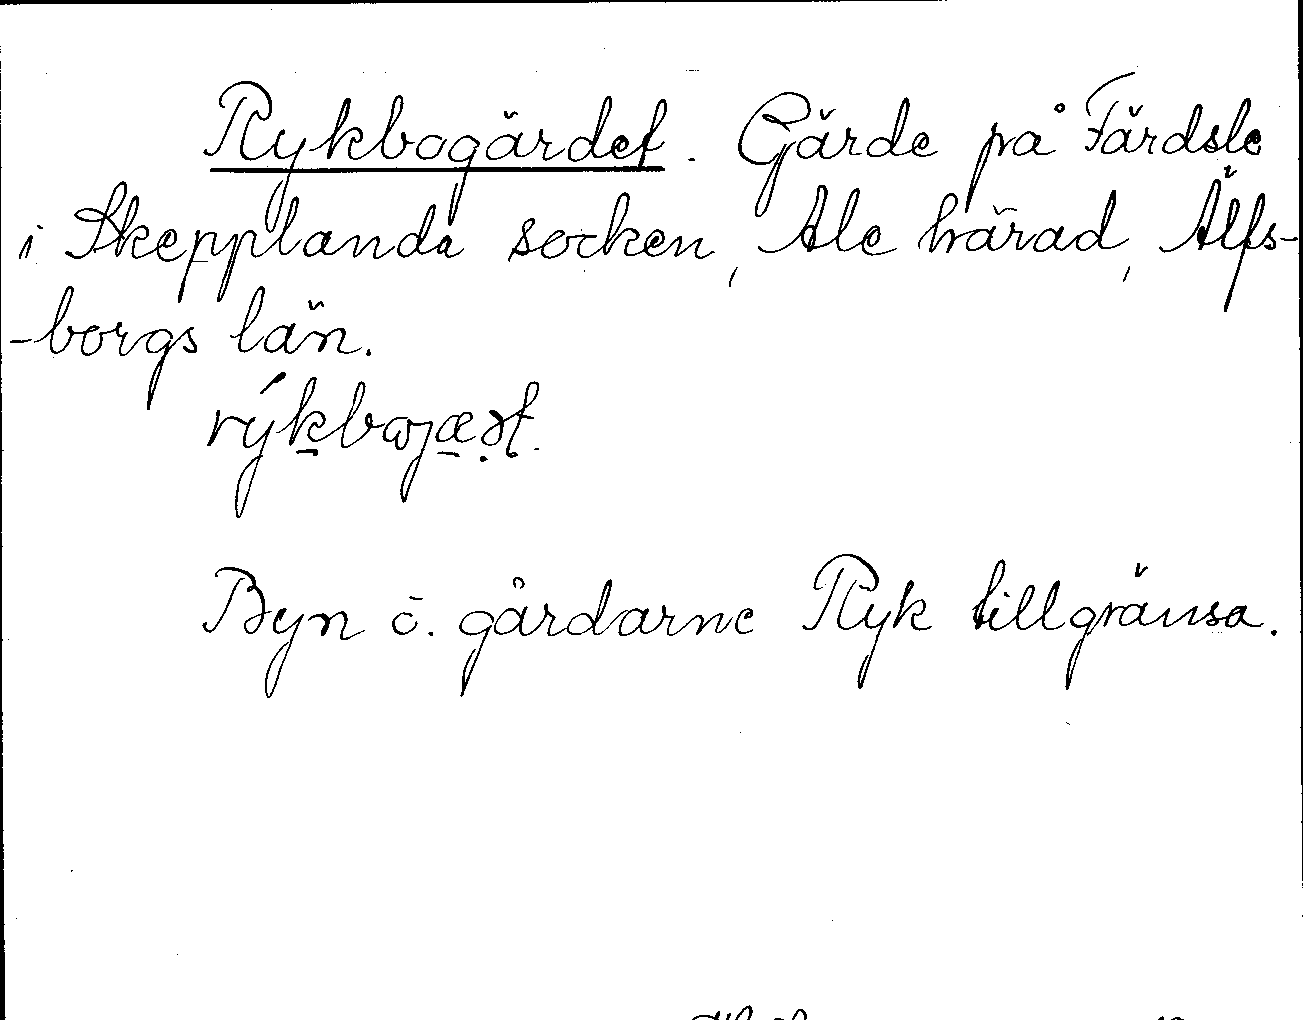 Rykbogärdet. Gärde på Färdsle
i Skepplanda socken, Ale härad, Älfs-
-borgs län.
rýk̠bωjæ̠ə̣t.
Byn o. gårdarne Ryk tillgränsa.